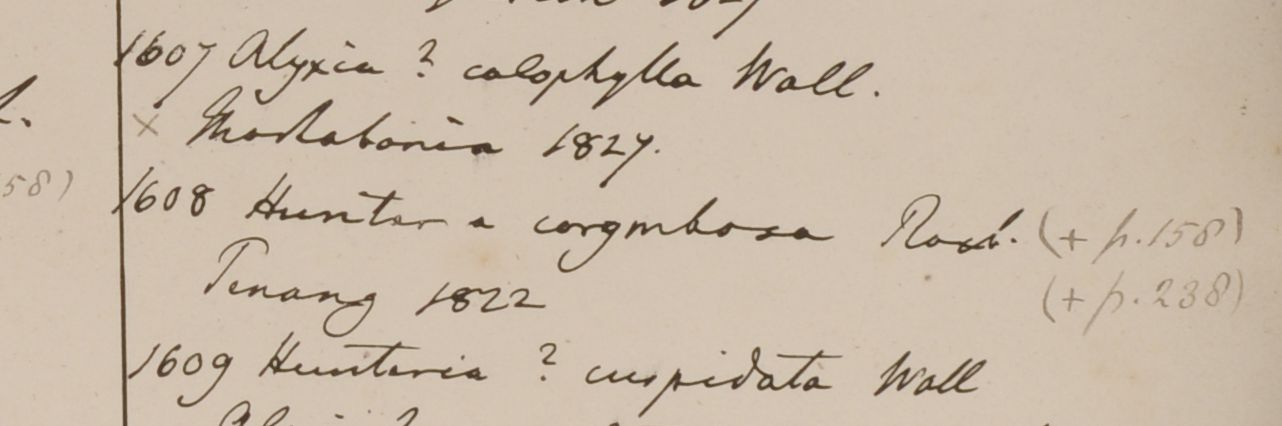 1607 Alyxia ? calophylla Wall.
× Martabania 1827.
58)
1608 Hunteria corymbosa Roxb. (+ p. 158)
Penang 1822 (+ p. 238)
1609 Hunteria ? cuspidata Wall